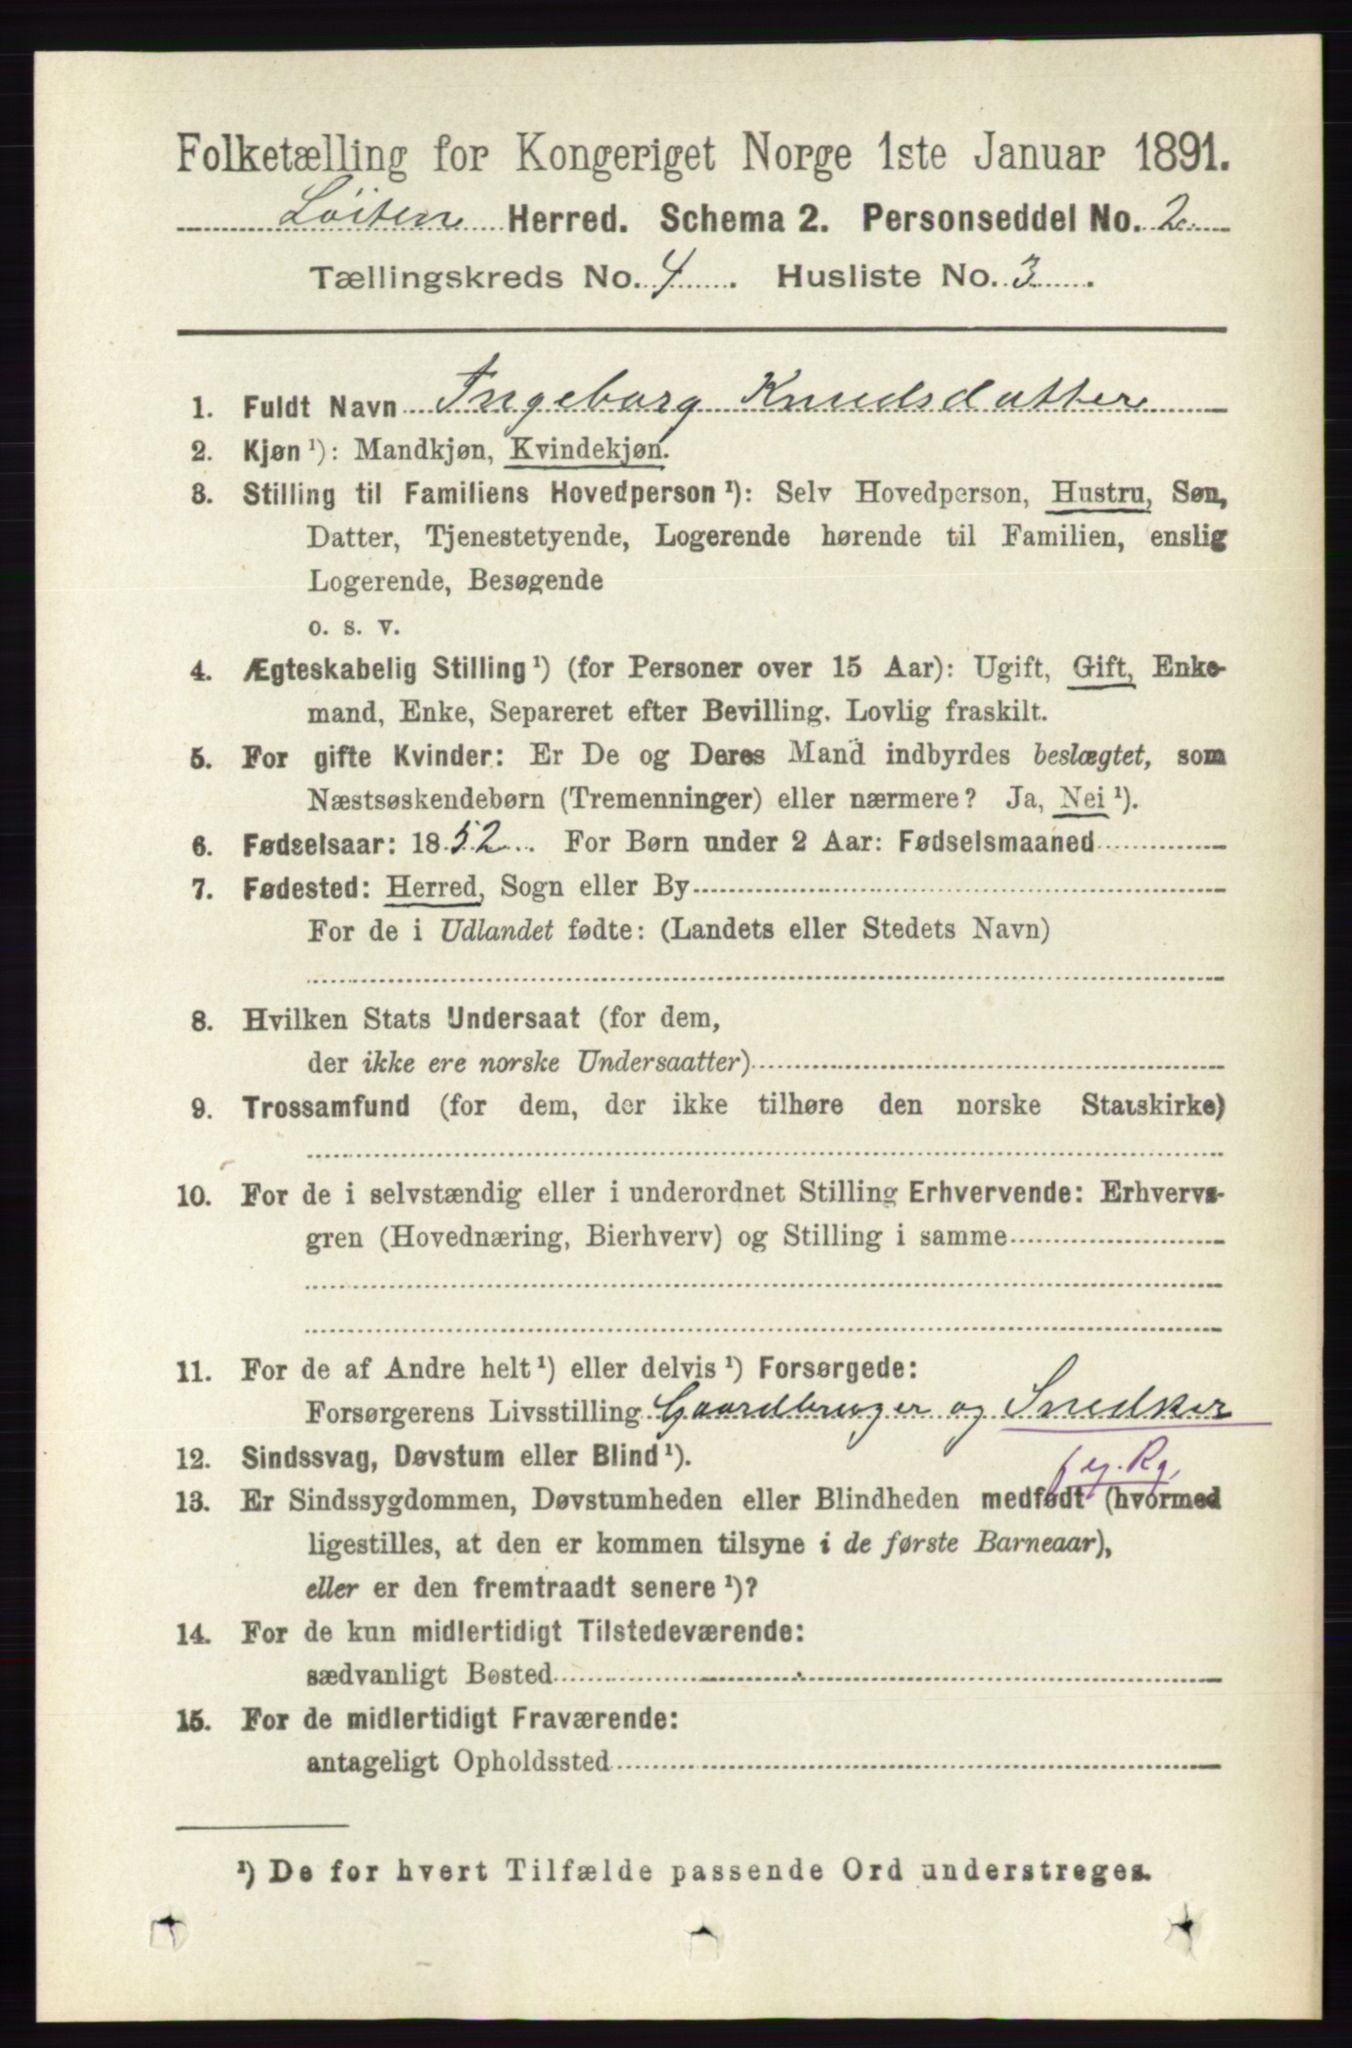 Folketælling for Kongeriget Norge 1ste Januar 1891.
Løiten Herred. Schema 2. Personseddel No. 2
Tællingskreds No. 4. Husliste No. 3.
1. Fuldt Navn Ingeborg Knudsdatter
2. Kjøn ¹): Mandkjøn, Kvindekjøn.
3. Stilling til Familiens Hovedperson ¹): Selv Hovedperson, Hustru, Søn,
Datter, Tjenestetyende, Logerende hørende til Familien, enslig
Logerende, Besøgende
o. s. v.
4. Ægteskabelig Stilling ¹) (for Personer over 15 Aar): Ugift, Gift, Enke-
mand, Enke, Separeret efter Bevilling. Lovlig fraskilt.
5. For gifte Kvinder: Er De og Deres Mand indbyrdes beslægtet, som
Næstsøskendebørn (Tremenninger) eller nærmere? Ja, Nei ¹).
6. Fødselsaar: 1852. For Børn under 2 Aar: Fødselsmaaned
7. Fødested: Herred, Sogn eller By
For de i Udlandet fødte: (Landets eller Stedets Navn)
8. Hvilken Stats Undersaat (for dem,
der ikke ere norske Undersaatter)
9. Trossamfund (for dem, der ikke tilhøre den norske Statskirke)
10. For de i selvstændig eller i underordnet Stilling Erhvervende: Erhvervs-
gren (Hovednæring, Bierhverv) og Stilling i samme
11. For de af Andre helt ¹) eller delvis ¹) Forsørgede:
Forsørgerens Livsstilling Gaardbruger og Snedker
f eg. Rg.
12. Sindssvag, Døvstum eller Blind ¹).
13. Er Sindssygdommen, Døvstumheden eller Blindheden medfødt (hvormed
ligestilles, at den er kommen tilsyne i de første Barneaar),
eller er den fremtraadt senere ¹)?
14. For de kun midlertidigt Tilstedeværende:
sædvanligt Bosted
15. For de midlertidigt Fraværende:
antageligt Opholdssted
¹) De for hvert Tilfælde passende Ord understreges.